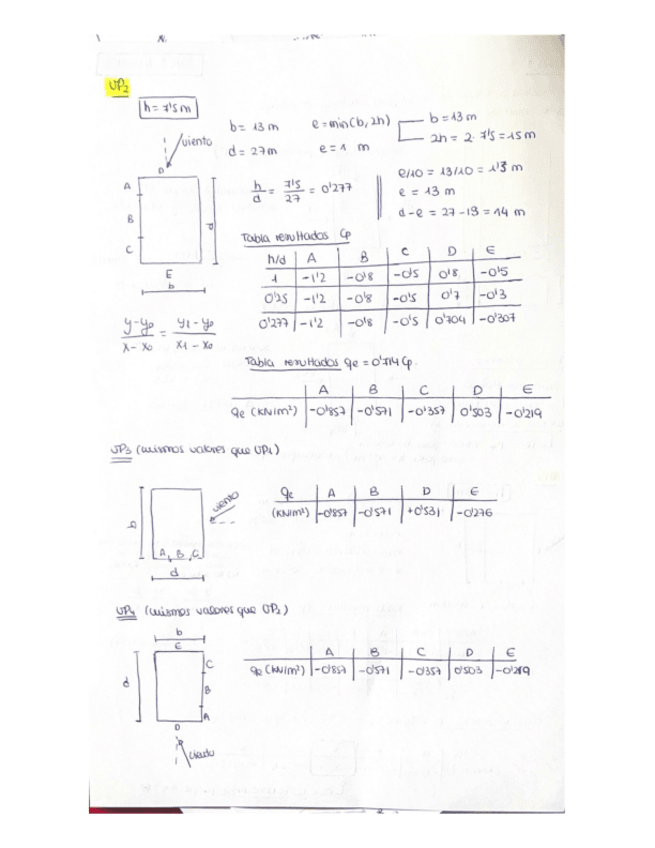 VP2
h = 7'5 m
viento
b = 13 m
e = min(b, 2h)
b = 13 m
2h = 2 · 7'5 = 15 m
d = 27 m
e = 1 m
D
A
B
C
E
d
b
h/d = 7'5/27 = 0'277
e/10 = 13/10 = 1'3 m
e = 13 m
d - e = 27 - 13 = 14 m
Tabla resultados Cp
h/d A B C D E
1 -1'2 -0'8 -0'5 0'8 -0'5
0'25 -1'2 -0'8 -0'5 0'7 -0'3
0'277 -1'2 -0'8 -0'5 0'704 -0'307
y-y0/x-x0 = y1-y0/x1-x0
Tabla resultados qe = 0'714 Cp
A B C D E
qe (kN/m²) -0'857 -0'571 -0'357 0'503 -0'219
VP3 (mismos valores que VP1)
viento
b
A B C
d
qe A B D E
(kN/m²) -0'857 -0'571 +0'531 -0'276
VP4 (mismos valores que VP2)
b
E
d
C
B
A
D
viento
A B C D E
qe (kN/m²) -0'857 -0'571 -0'357 0'503 -0'219